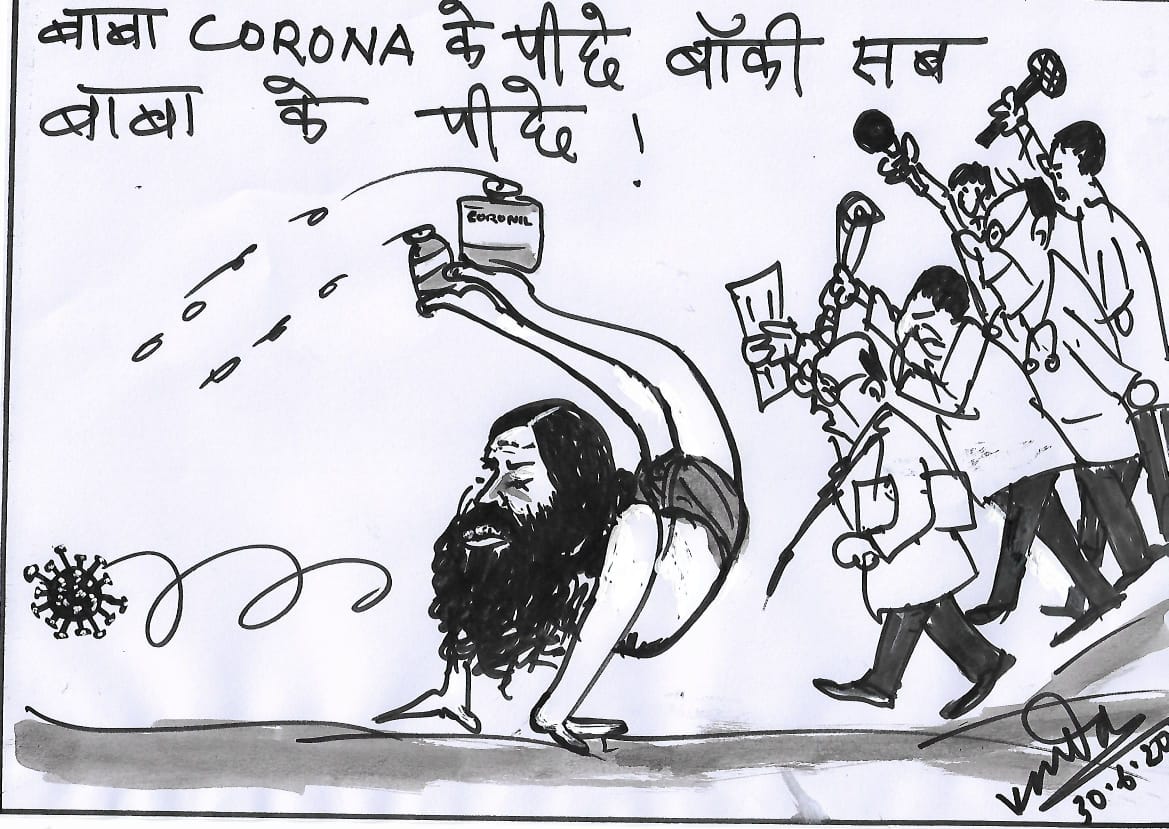 बाबा CORONA के पीछे बॉकी सब
बाबा के पीछे !
CORONIL
30.6.20